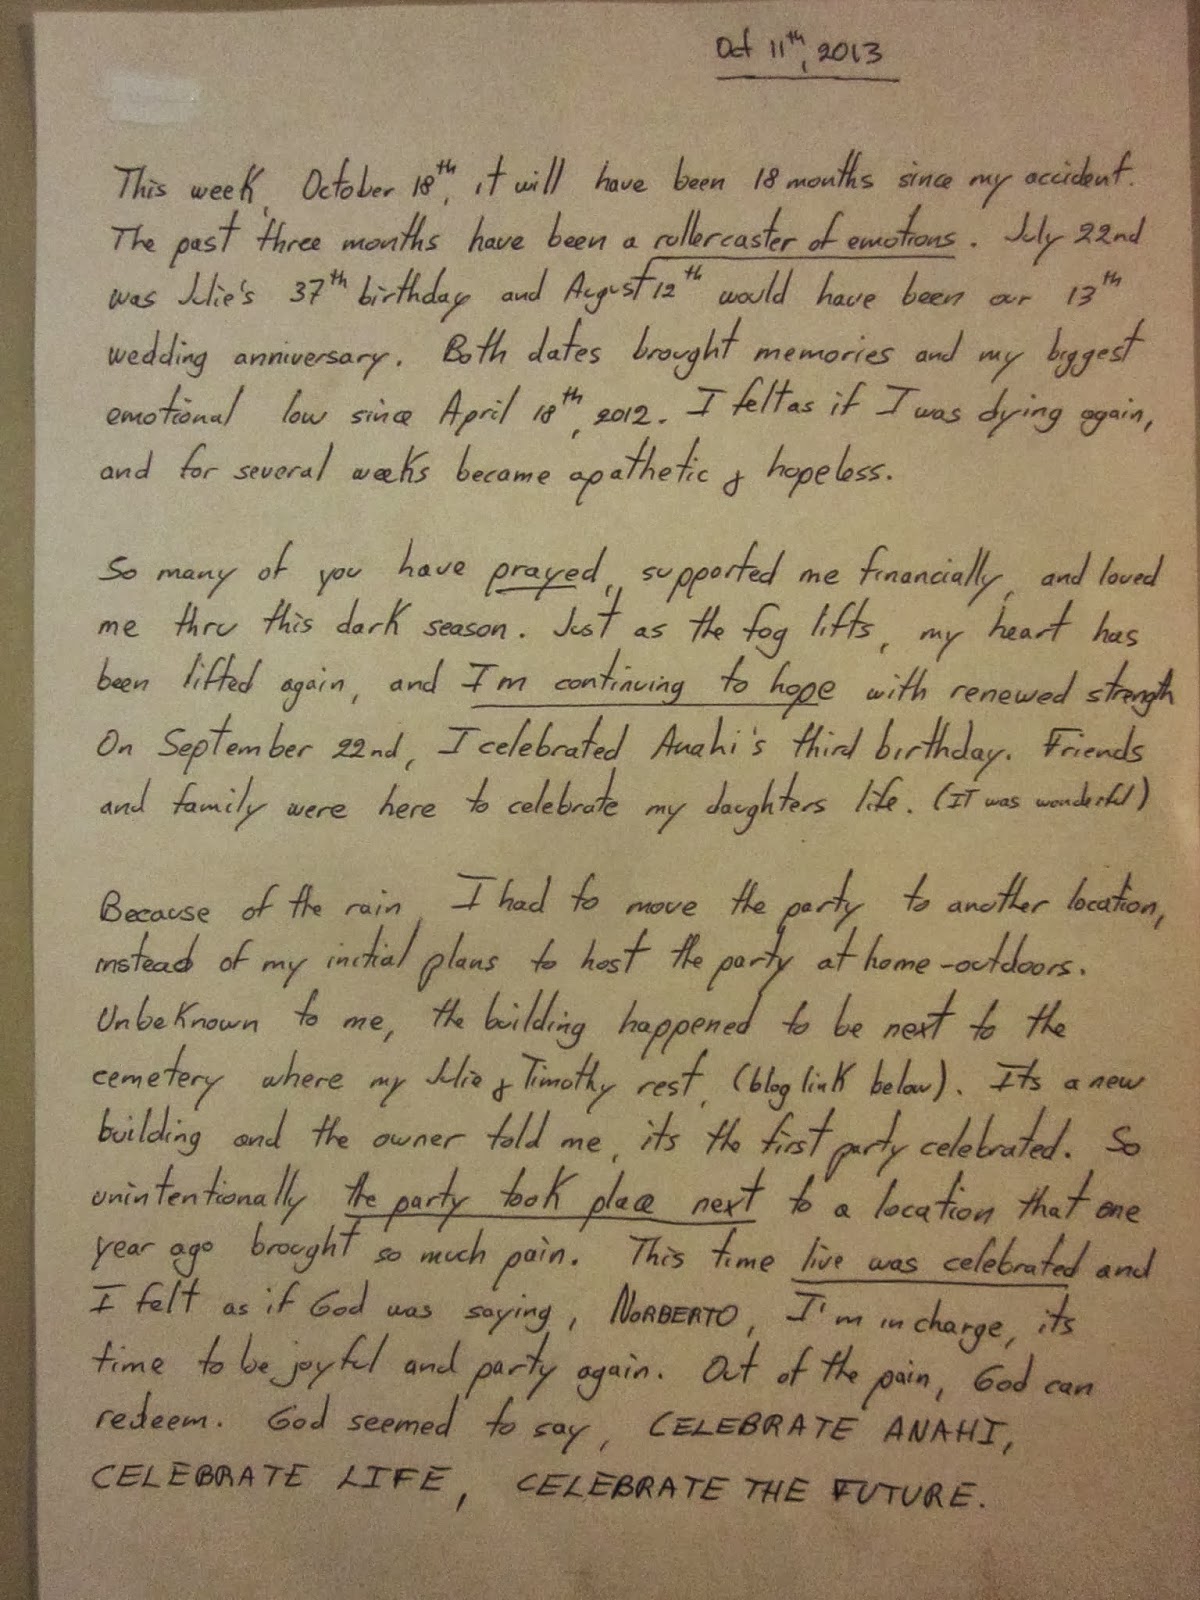 Oct 11th, 2013
This week, October 18th, it will have been 18 months since my accident.
The past three months have been a rollercaster of emotions. July 22nd
was Julie's 37th birthday and August 12th would have been our 13th
wedding anniversary. Both dates brought memories and my biggest
emotional low since April 18th, 2012. I felt as if I was dying again,
and for several weeks became apathetic & hopeless.
So many of you have prayed, supported me financially, and loved
me thru this dark season. Just as the fog lifts, my heart has
been lifted again, and I'm continuing to hope with renewed strength
On September 22nd, I celebrated Anahi's third birthday. Friends
and family were here to celebrate my daughters life. (IT was wonderful)
Because of the rain, I had to move the party to another location,
instead of my initial plans to host the party at home-outdoors.
Unbeknown to me, the building happened to be next to the
cemetery where my Julie & Timothy rest, (blog link below). Its a new
building and the owner told me, its the first party celebrated. So
unintentionally the party took place next to a location that one
year ago brought so much pain. This time live was celebrated and
I felt as if God was saying, NORBERTO, I'm in charge, its
time to be joyful and party again. Out of the pain, God can
redeem. God seemed to say, CELEBRATE ANAHI,
CELEBRATE LIFE, CELEBRATE THE FUTURE.